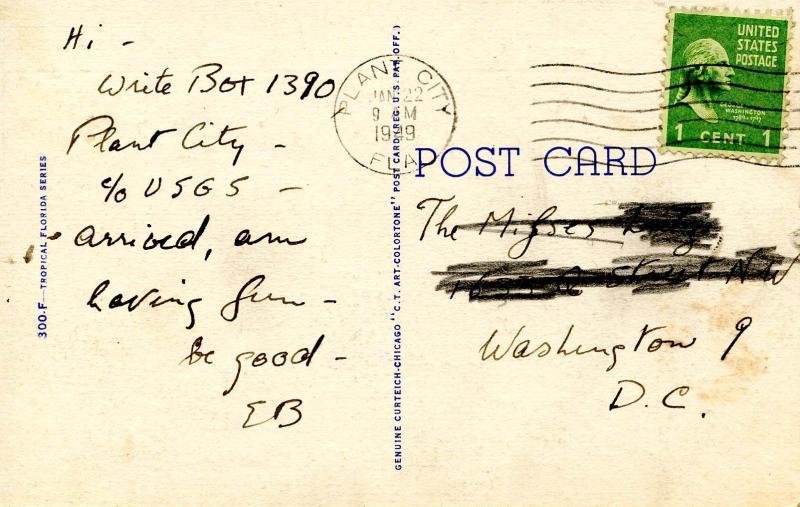 Hi -
Write Box 1390
Plant City -
c/o USGS -
arrived, am
having fun -
be good -
EB
300-F—TROPICAL FLORIDA SERIES
GENUINE CURTEICH-CHICAGO "C.T. ART-COLORTONE" POST CARD (REG. U.S. PAT. OFF.)
PLANT CITY
JAN 22
9 M
1949
FLA
UNITED
STATES
POSTAGE
GEORGE
WASHINGTON
1789-1797
1 CENT 1
POST CARD
The Misses
Street NW
Washington 9
D.C.